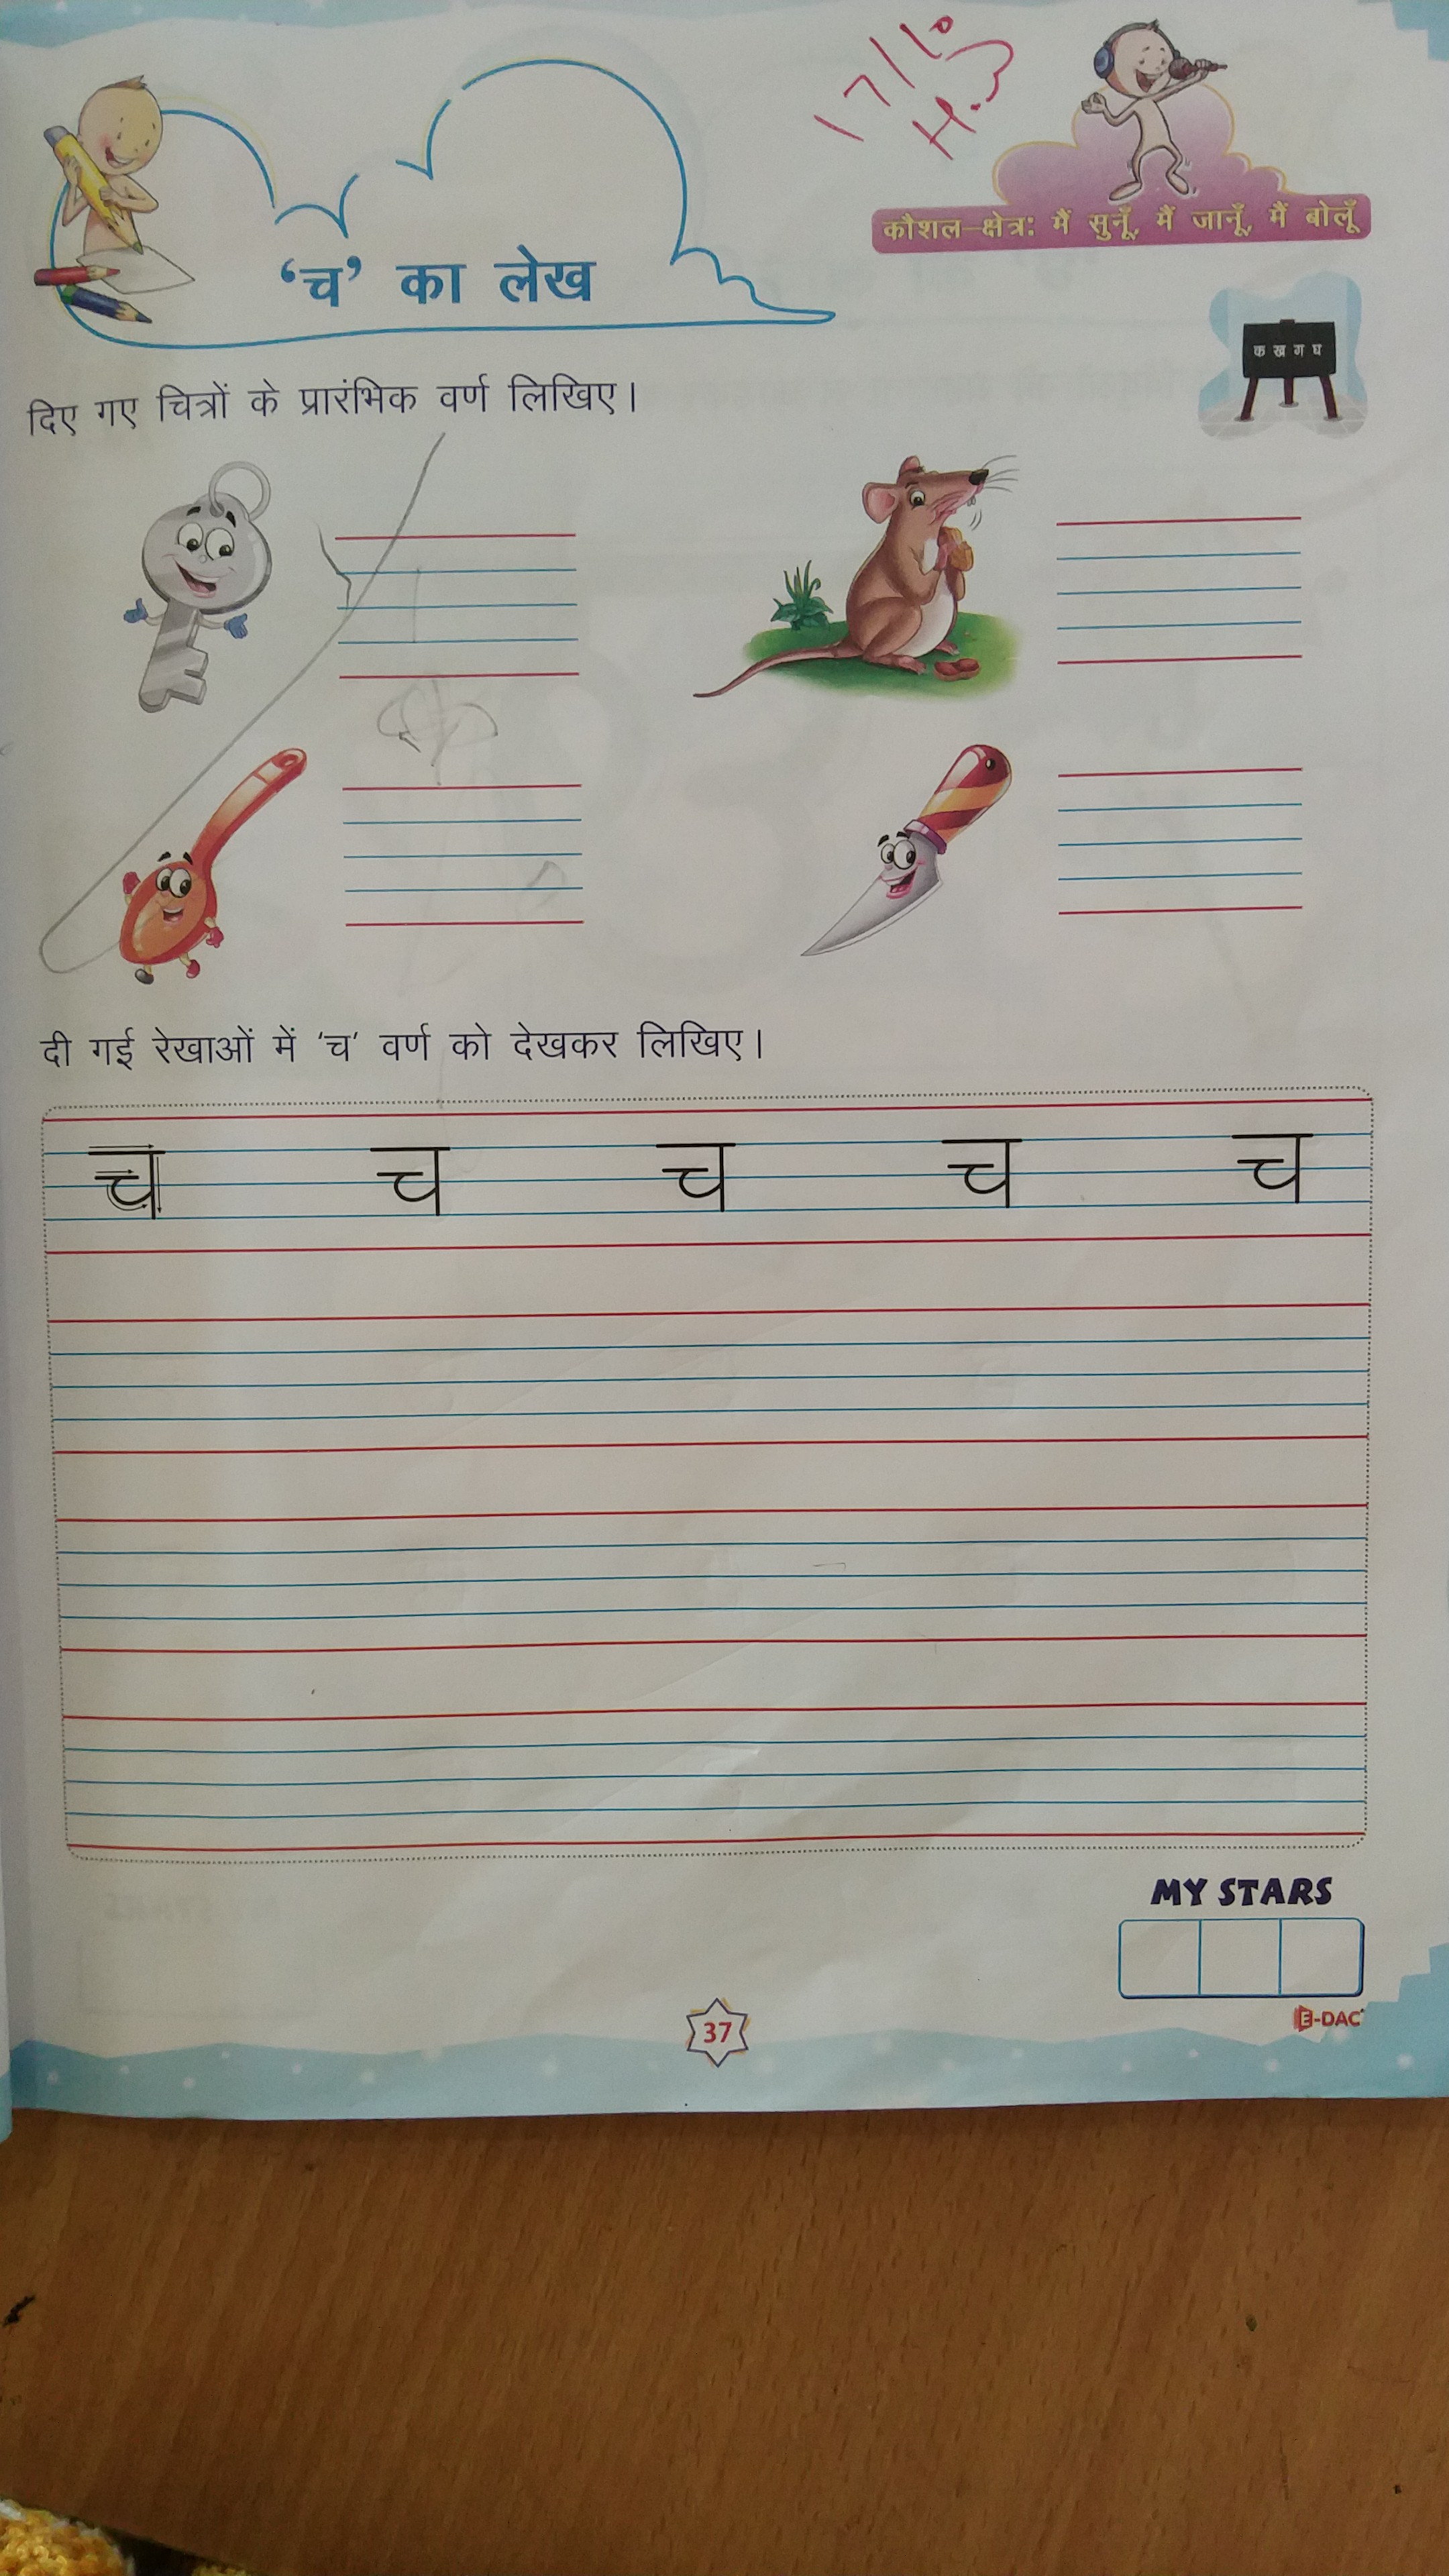 17/10
H.W
कौशल–क्षेत्र: मैं सुनूँ, मैं जानूँ, मैं बोलूँ
‘च’ का लेख
क ख ग घ
दिए गए चित्रों के प्रारंभिक वर्ण लिखिए।
दी गई रेखाओं में ‘च’ वर्ण को देखकर लिखिए।
च च च च च
MY STARS
37
E-DAC